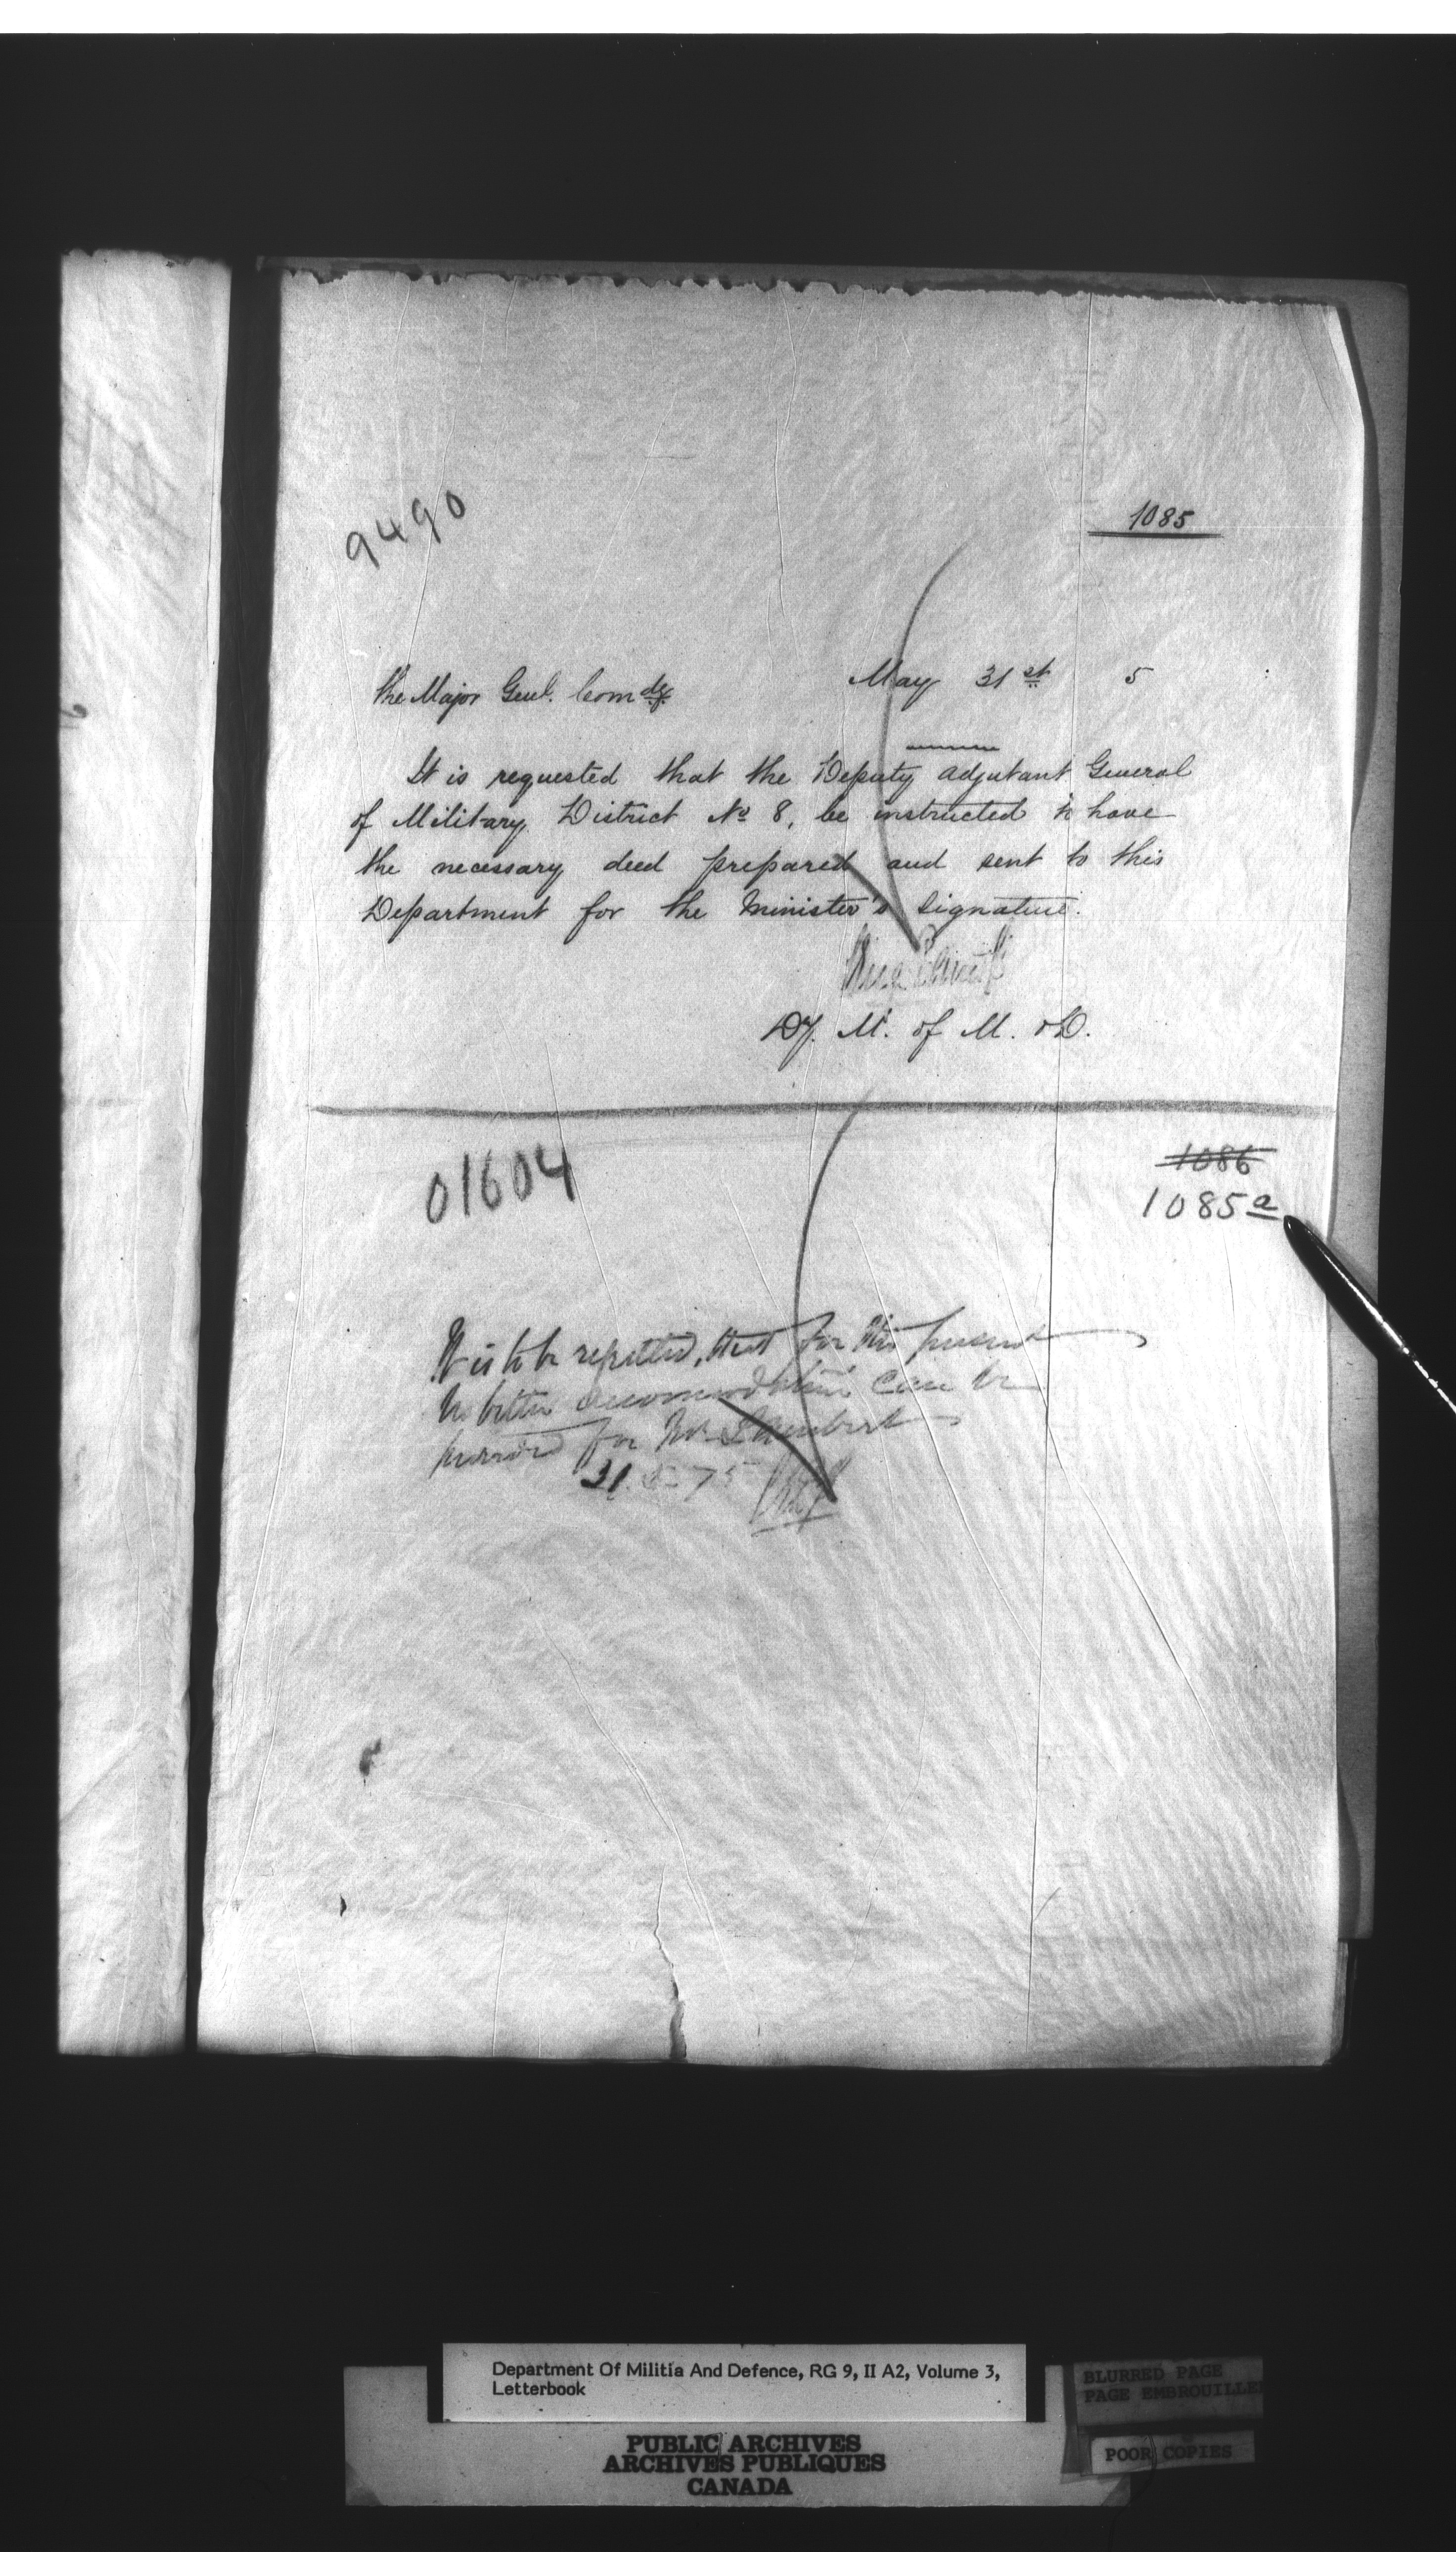 9490
1085
The Major Genl. Comdg. May 31st 5
It is requested that the Deputy Adjutant General
of Military District No 8, be instructed to have
the necessary deed prepared and sent to this
Department for the Minister's signature.
Dy. M. of M. & D.
01604
1086
1085a
It is to be regretted, that for the present
no better accommodation can be
for Mr Lambert
31. 5 - 75
Department Of Militia And Defence, RG 9, II A2, Volume 3,
Letterbook
BLURRED PAGE
PAGE EMBROUILLEE
POOR COPIES
PUBLIC ARCHIVES
ARCHIVES PUBLIQUES
CANADA